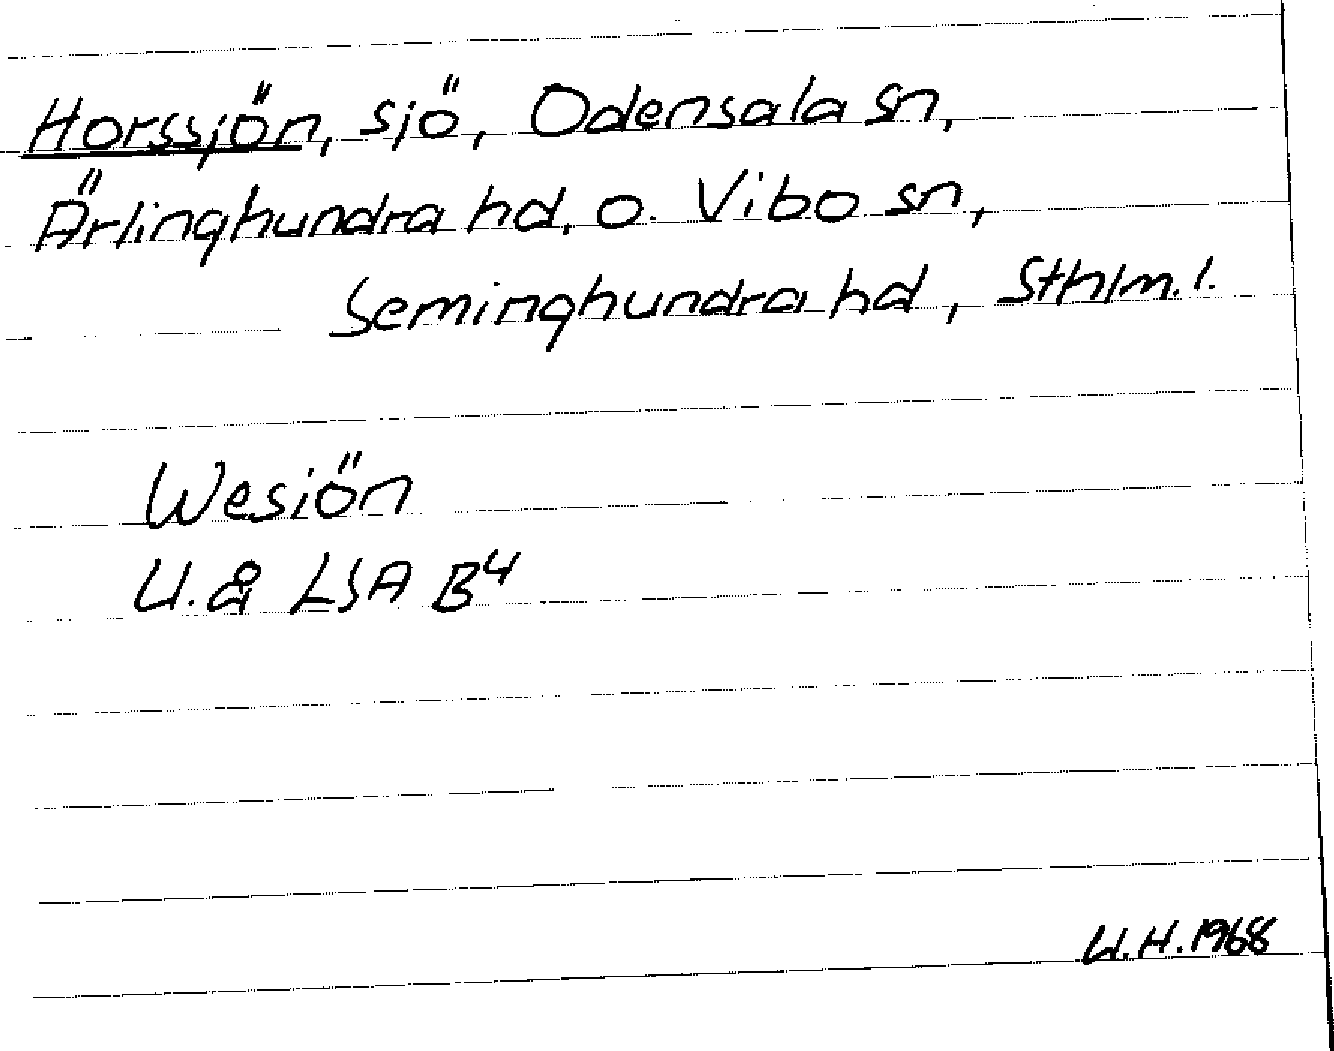 Horssjön, sjö, Odensala sn,
Ärlinghundra hd. o. Vibo sn,
Seminghundra hd, Sthlm. l.
Wesiön
U. å LSA B4
U.H. 1968